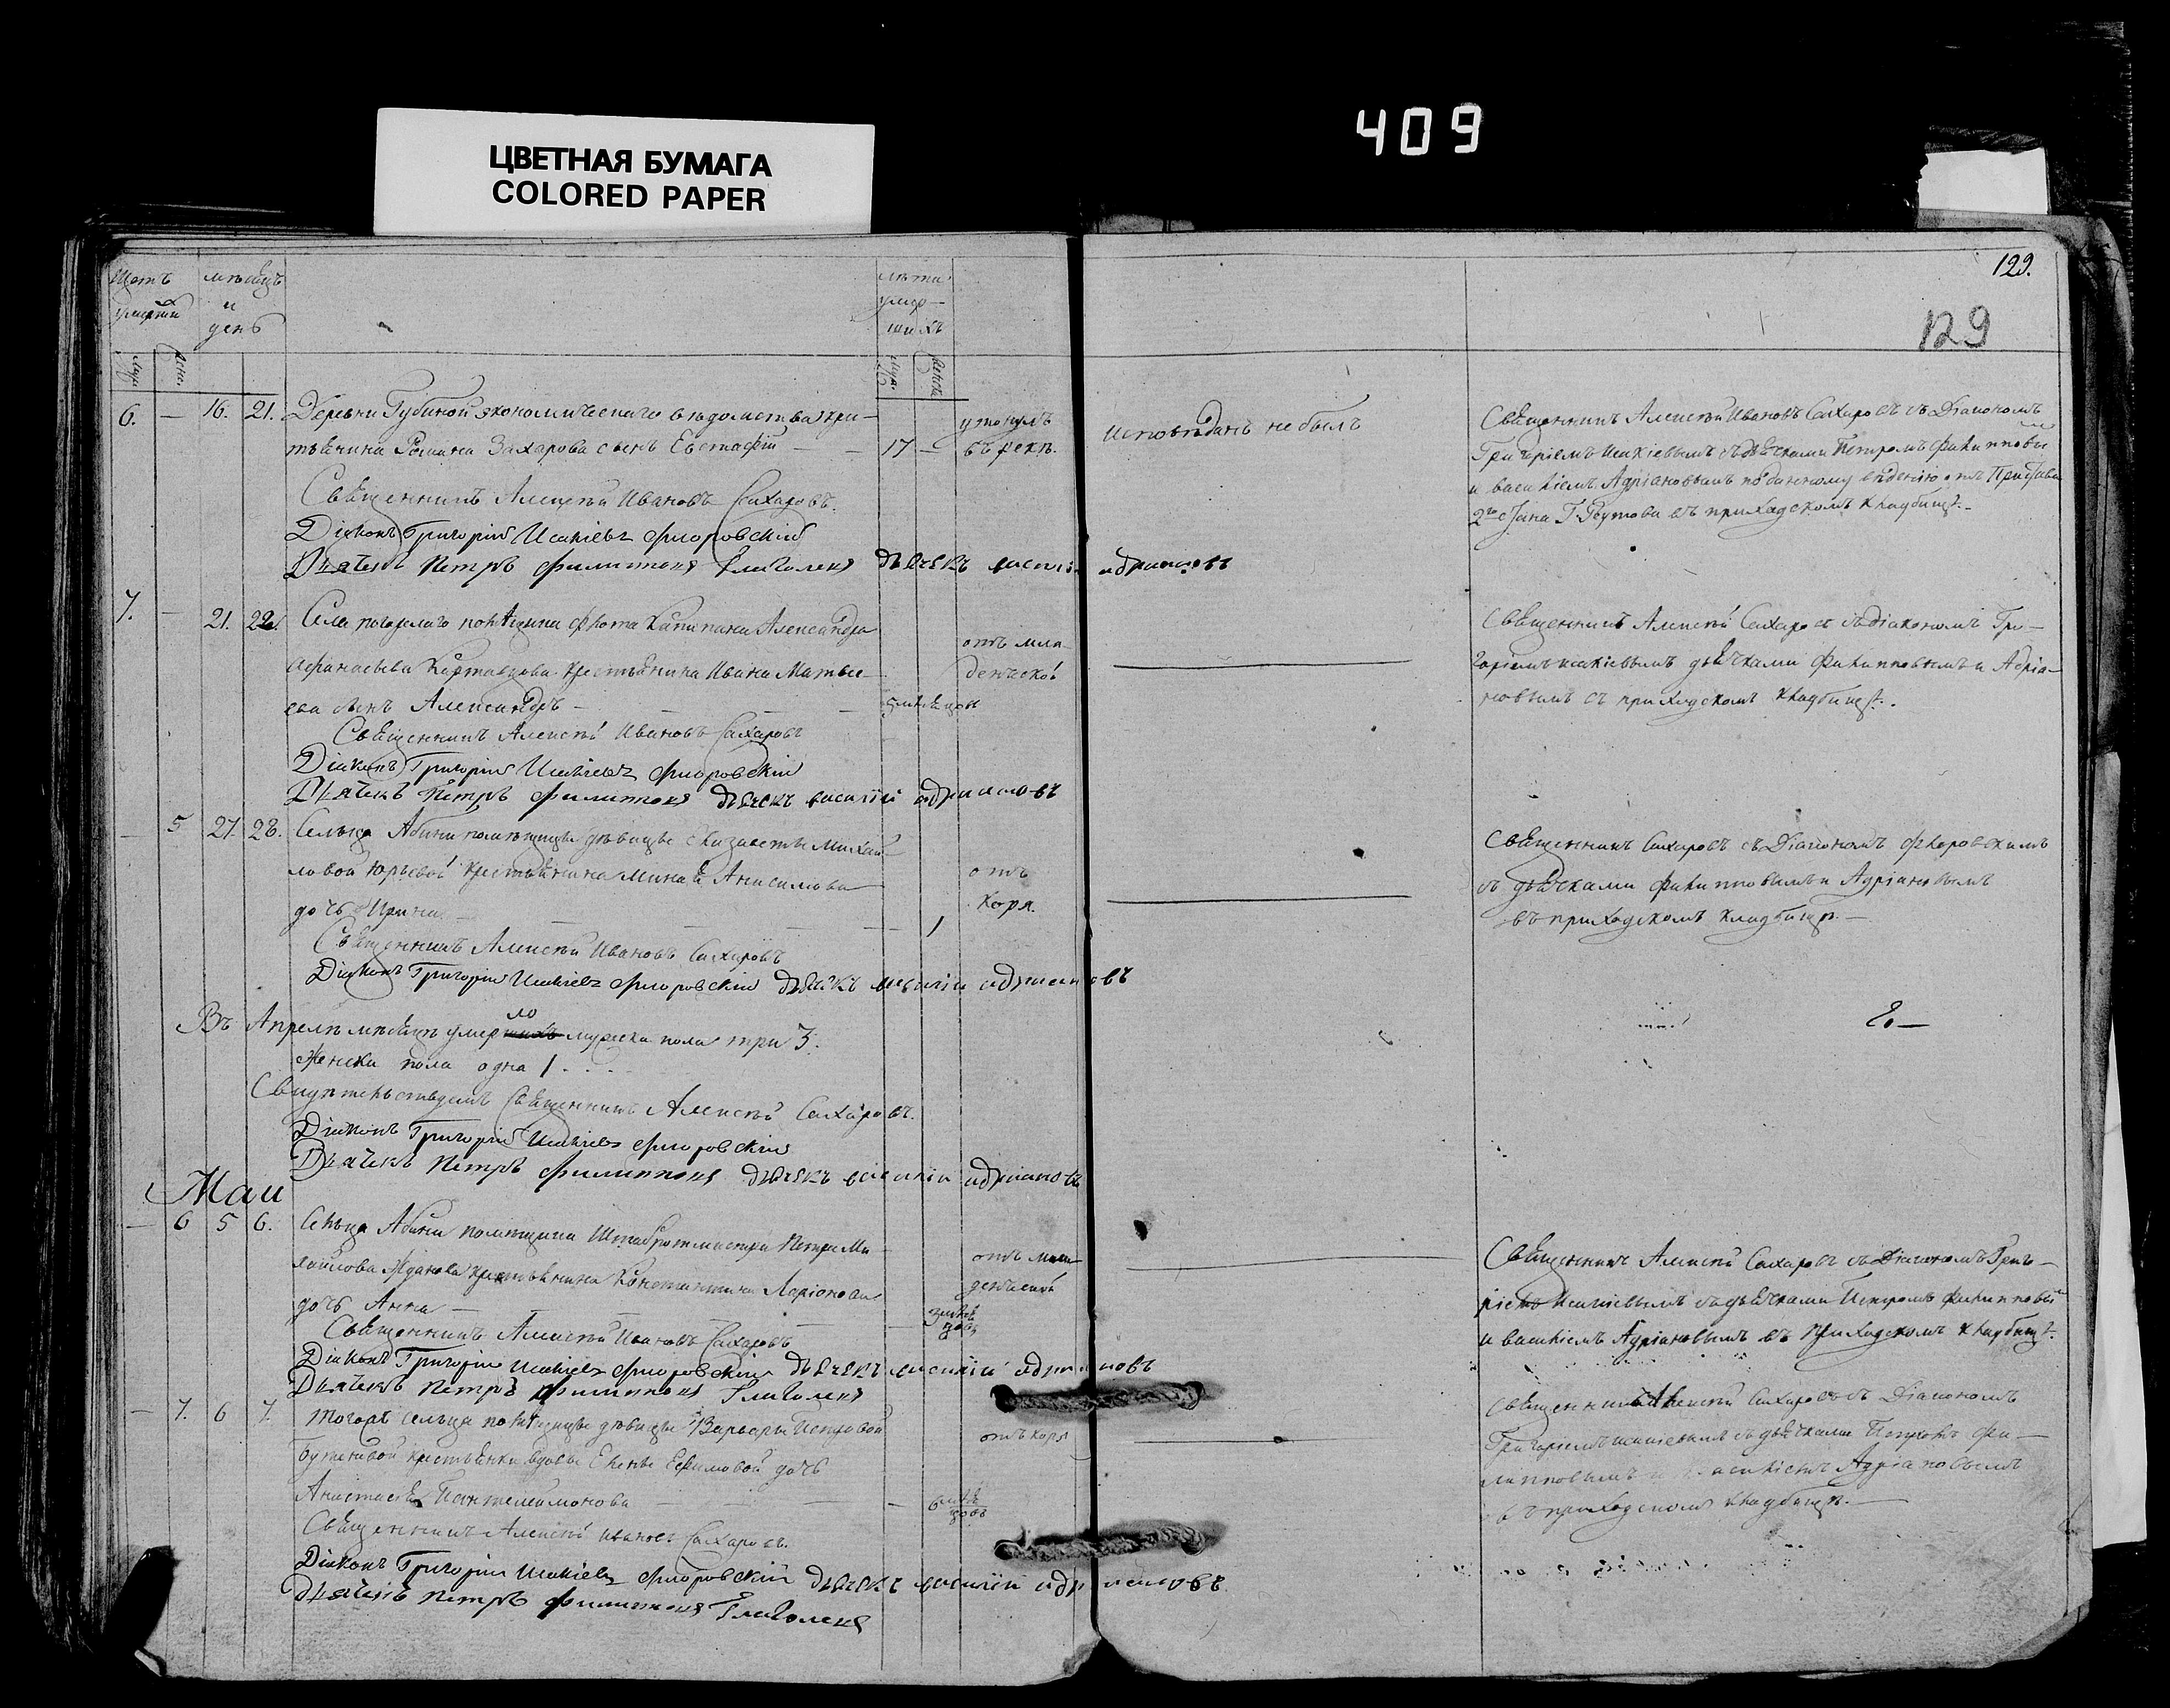 409
ЦВЕТНАЯ БУМАГА
COLORED PAPER
129.
129
Щетъ
умершихъ
мѣсяцъ
и
день
лѣта
умер-
шихъ
Муж.
Жен.
Муж.
Женск.
6. — 16. 21. Деревни Губиной экономическаго вѣдомства кре-
стьянина Романа Захарова сынъ Евстафій — 17 —
утонулъ
въ рекѣ.
исповѣданъ не былъ
Священникъ Алексѣй Ивановъ Сахаровъ съ Діакономъ
Григоріемъ Исакіевымъ съ дьячками Петромъ Филипповы
и Василіемъ Адріановымъ по данному виденію отъ Пристава
2го стана Г. Реутова въ приходскомъ кладбищѣ.
Священникъ Алексѣй Ивановъ Сахаровъ.
Діаконъ Григорій Исакіевъ Флоровскій
Дьячекъ Петръ Филиповъ Глаголевъ дьячекъ василій адриановъ
7. — 21. 22. Села помѣщика флота Капитана Александра
Афанасьева крестьянина Ивана Матвѣ-
ева сынъ Александръ — 5 мѣсяцовъ
отъ мла-
денческой
Священникъ Алексѣй Сахаровъ съ діакономъ Гри-
горіемъ исакіевымъ дьячками Филипповымъ и Адріа-
новымъ въ приходскомъ кладбищѣ.
Священникъ Алексѣй Ивановъ Сахаровъ
Діаконъ Григорій Исакіевъ Флоровскій
Дьячекъ Петръ Филиповъ дьячекъ василій адриановъ
— 5 27. 28. Сельца Абини помѣщицы дѣвицы Елизаветы Михай-
ловой Юрьевой крестьянина Миная Анисимова
дочь Ирина — 1
отъ
коря.
Священникъ Сахаровъ съ Діакономъ Флоровскимъ
съ дьячками Филипповымъ и Адріановымъ
въ приходскомъ кладбищѣ. —
Священникъ Алексѣй Ивановъ Сахаровъ
Діаконъ Григорій Исакіевъ Флоровскій дьячекъ василій адриановъ
Въ Апрелѣ мѣсяцѣ умерло мужеска пола три 3.
Женска пола одна 1.
Свидѣтельствуемъ Священникъ Алексѣй Сахаровъ.
Діаконъ Григорій Исакіевъ Флоровскій
Дьячекъ Петръ Филиповъ дьячекъ василій адриановъ
Маи
— 6 5 6. Сельца Абини помѣщика Штабротмистра Петра Ми-
хайлова Жданова крестьянина Константина Ларіонова
дочь Анна — 3 мѣся
цовъ
отъ мла-
денческой
Священникъ Алексѣй Сахаровъ съ Діакономъ Григо-
ріемъ Исакіевымъ съ дьячками Петромъ Филипповы
и Василіемъ Адріановымъ въ Приходскомъ кладбищѣ.
Священникъ Алексѣй Ивановъ Сахаровъ
Діаконъ Григорій Исакіевъ Флоровскій дьячекъ василій адриановъ
Дьячекъ Петръ Филиповъ Глаголевъ
— 7. 6 7. Тогожъ сельца помѣщицы дѣвицы Варвары Петровой
крестьянки вдовы Елены Ефимовой дочь
Анастасія Пантелеимонова — 6 мѣся
цовъ
отъ коря
Священникъ Алексѣй Сахаровъ съ Діакономъ
Григоріемъ исакіевымъ съ дьячками Петромъ Фи-
липповымъ и Василіемъ Адріановымъ
въ приходскомъ кладбищѣ. —
Священникъ Алексѣй Ивановъ Сахаровъ.
Діаконъ Григорій Исакіевъ Флоровскій дьячекъ василій адриановъ.
Дьячекъ Петръ Филиповъ Глаголевъ